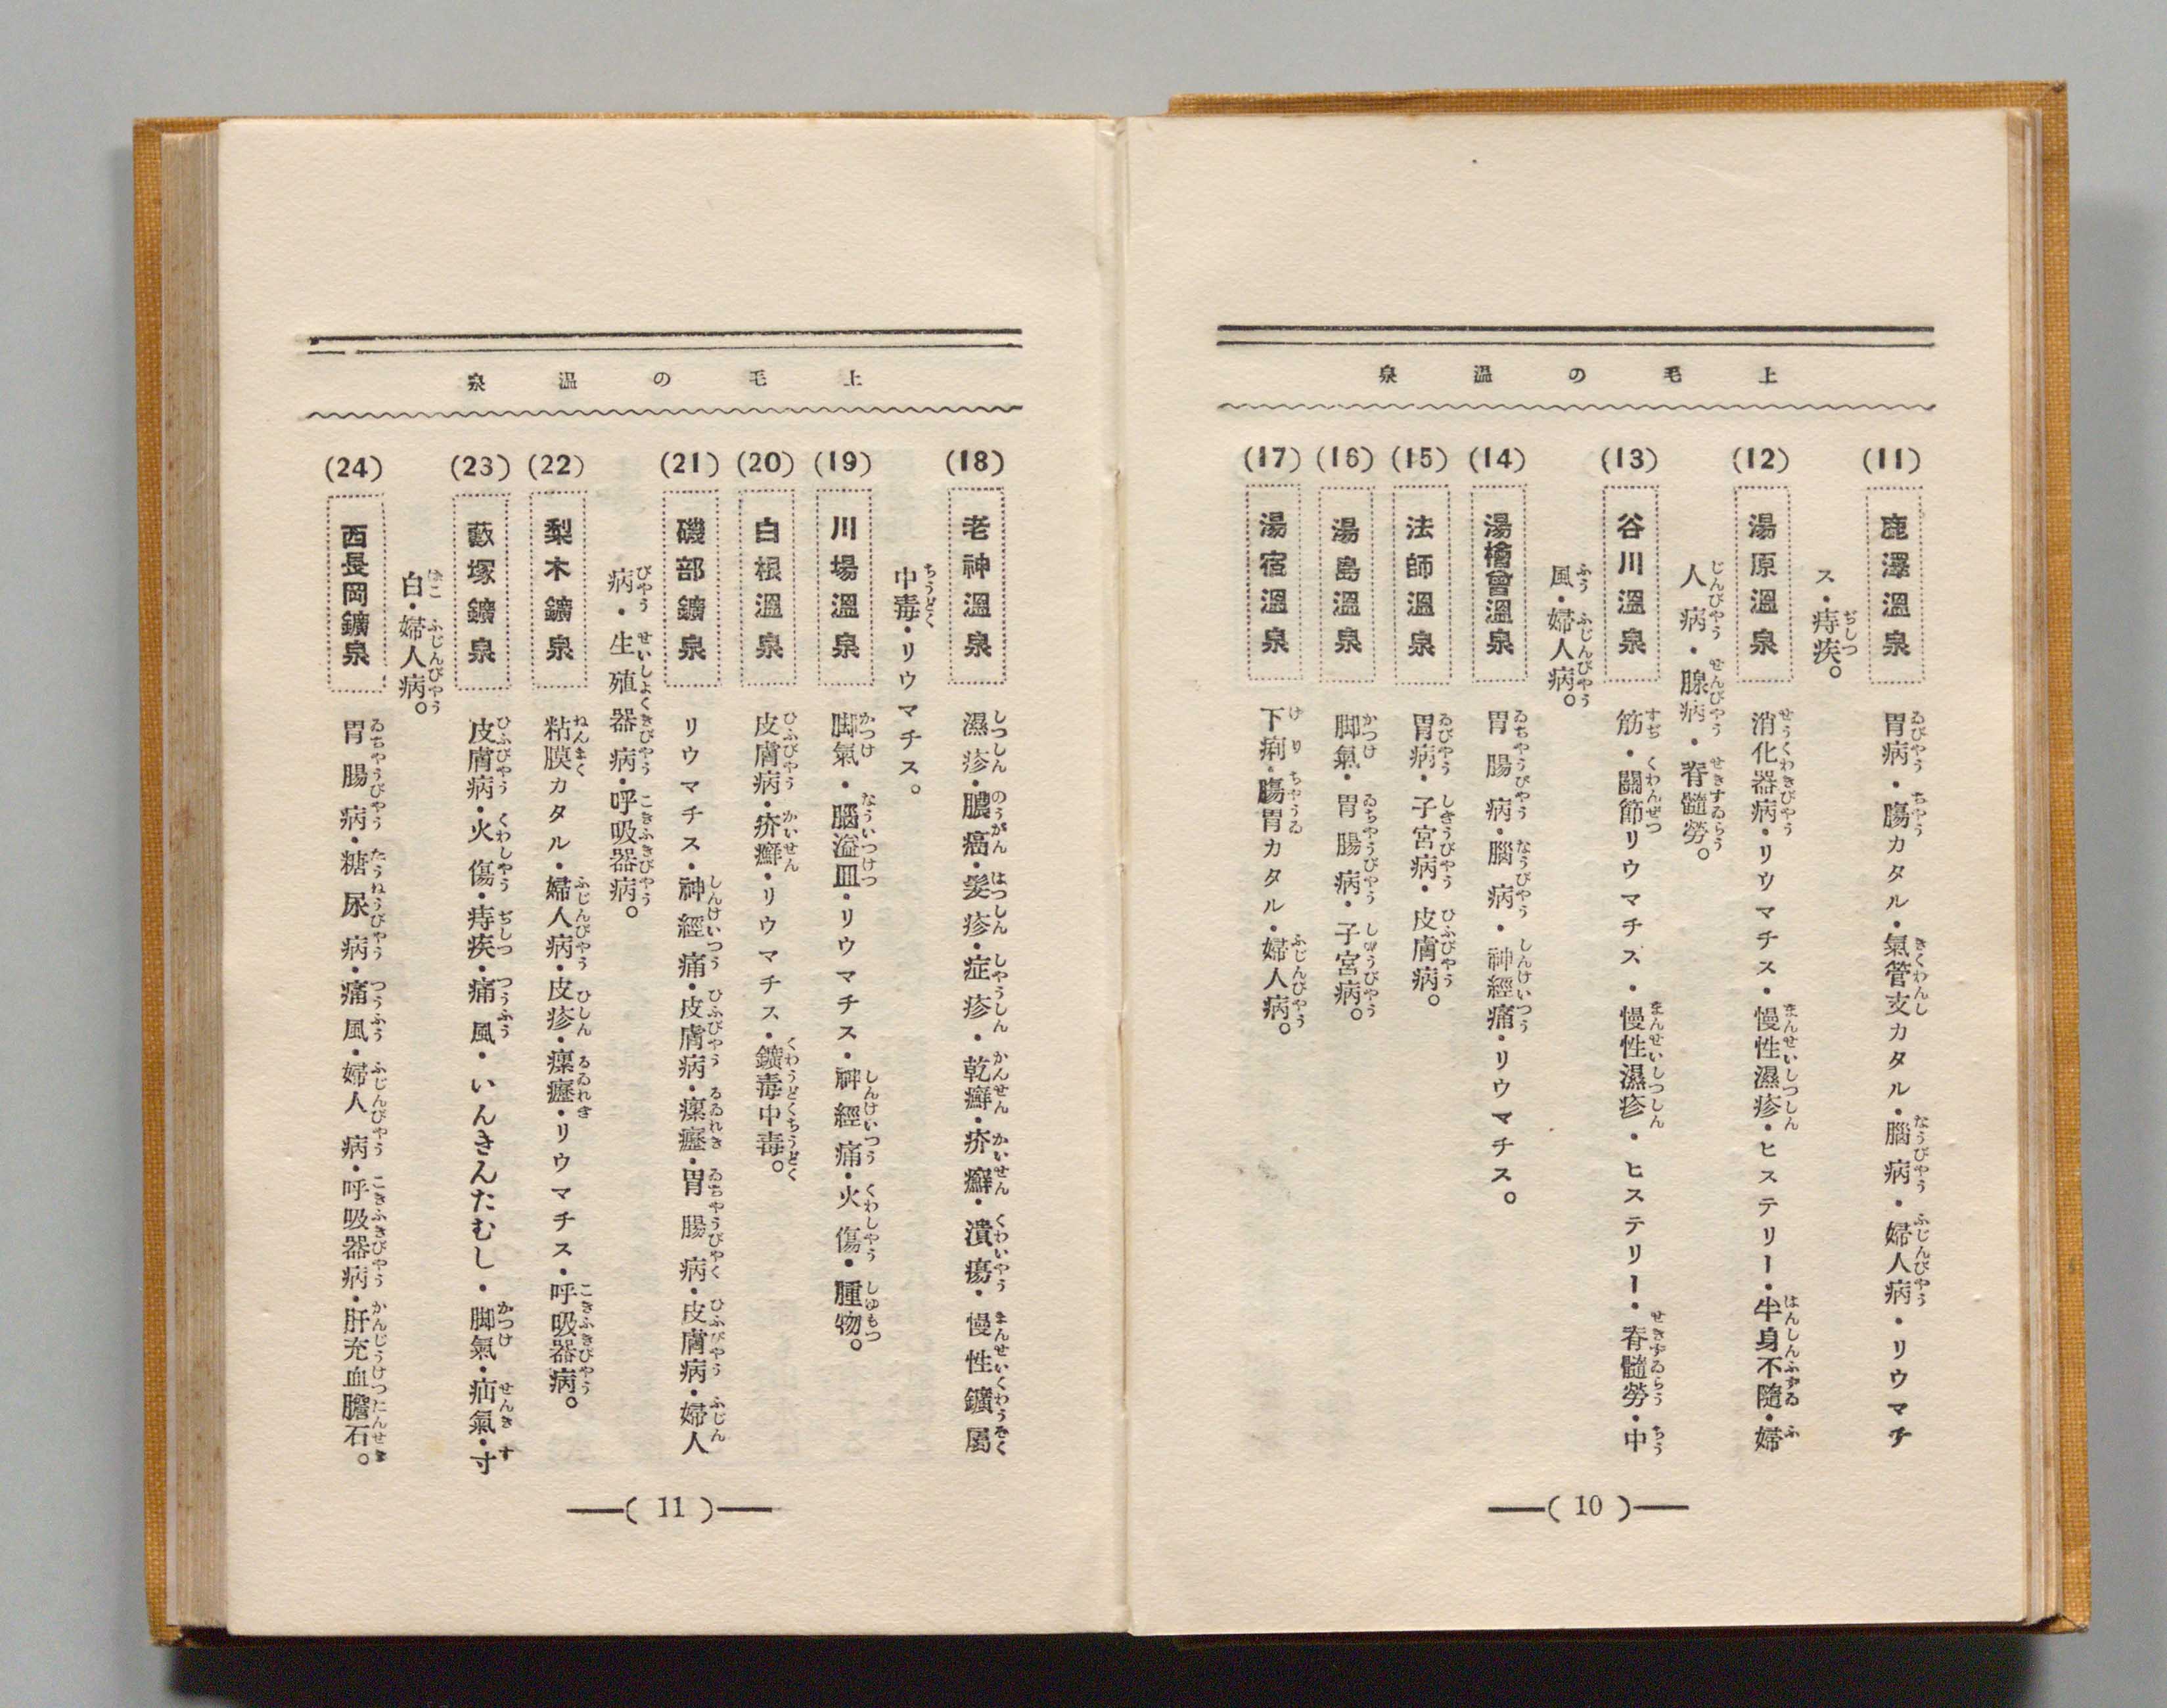 上毛の溫泉
(11) 鹿澤溫泉 胃病・腸カタル・氣管支カタル・腦病・婦人病・リウマチ
ス・痔疾。
(12) 湯原溫泉 消化器病・リウマチス・慢性濕疹・ヒステリー・半身不隨・婦
人病・腺病・脊髓勞。
(13) 谷川溫泉 筋・關節リウマチス・慢性濕疹・ヒステリー・脊髓勞・中
風・婦人病。
(14) 湯檜曾溫泉 胃腸病・腦病・神經痛・リウマチス。
(15) 法師溫泉 胃病・子宮病・皮膚病。
(16) 湯島溫泉 脚氣・胃腸病・子宮病。
(17) 湯宿溫泉 下痢・腸胃カタル・婦人病。
(10)
上毛の溫泉
(18) 老神溫泉 濕疹・膿癌・髮疹・症疹・乾癬・疥癬・潰瘍・慢性鑛屬
中毒・リウマチス。
(19) 川場溫泉 脚氣・腦溢血・リウマチス・神經痛・火傷・腫物。
(20) 白根溫泉 皮膚病・疥癬・リウマチス・鑛毒中毒。
(21) 磯部鑛泉 リウマチス・神經痛・皮膚病・瘰癧・胃腸病・皮膚病・婦人
病・生殖器病・呼吸器病。
(22) 梨木鑛泉 粘膜カタル・婦人病・皮疹・瘰癧・リウマチス・呼吸器病。
(23) 藪塚鑛泉 皮膚病・火傷・痔疾・痛風・いんきんたむし・脚氣・疝氣・寸
白・婦人病。
(24) 西長岡鑛泉 胃腸病・糖尿病・痛風・婦人病・呼吸器病・肝充血膽石。
(11)